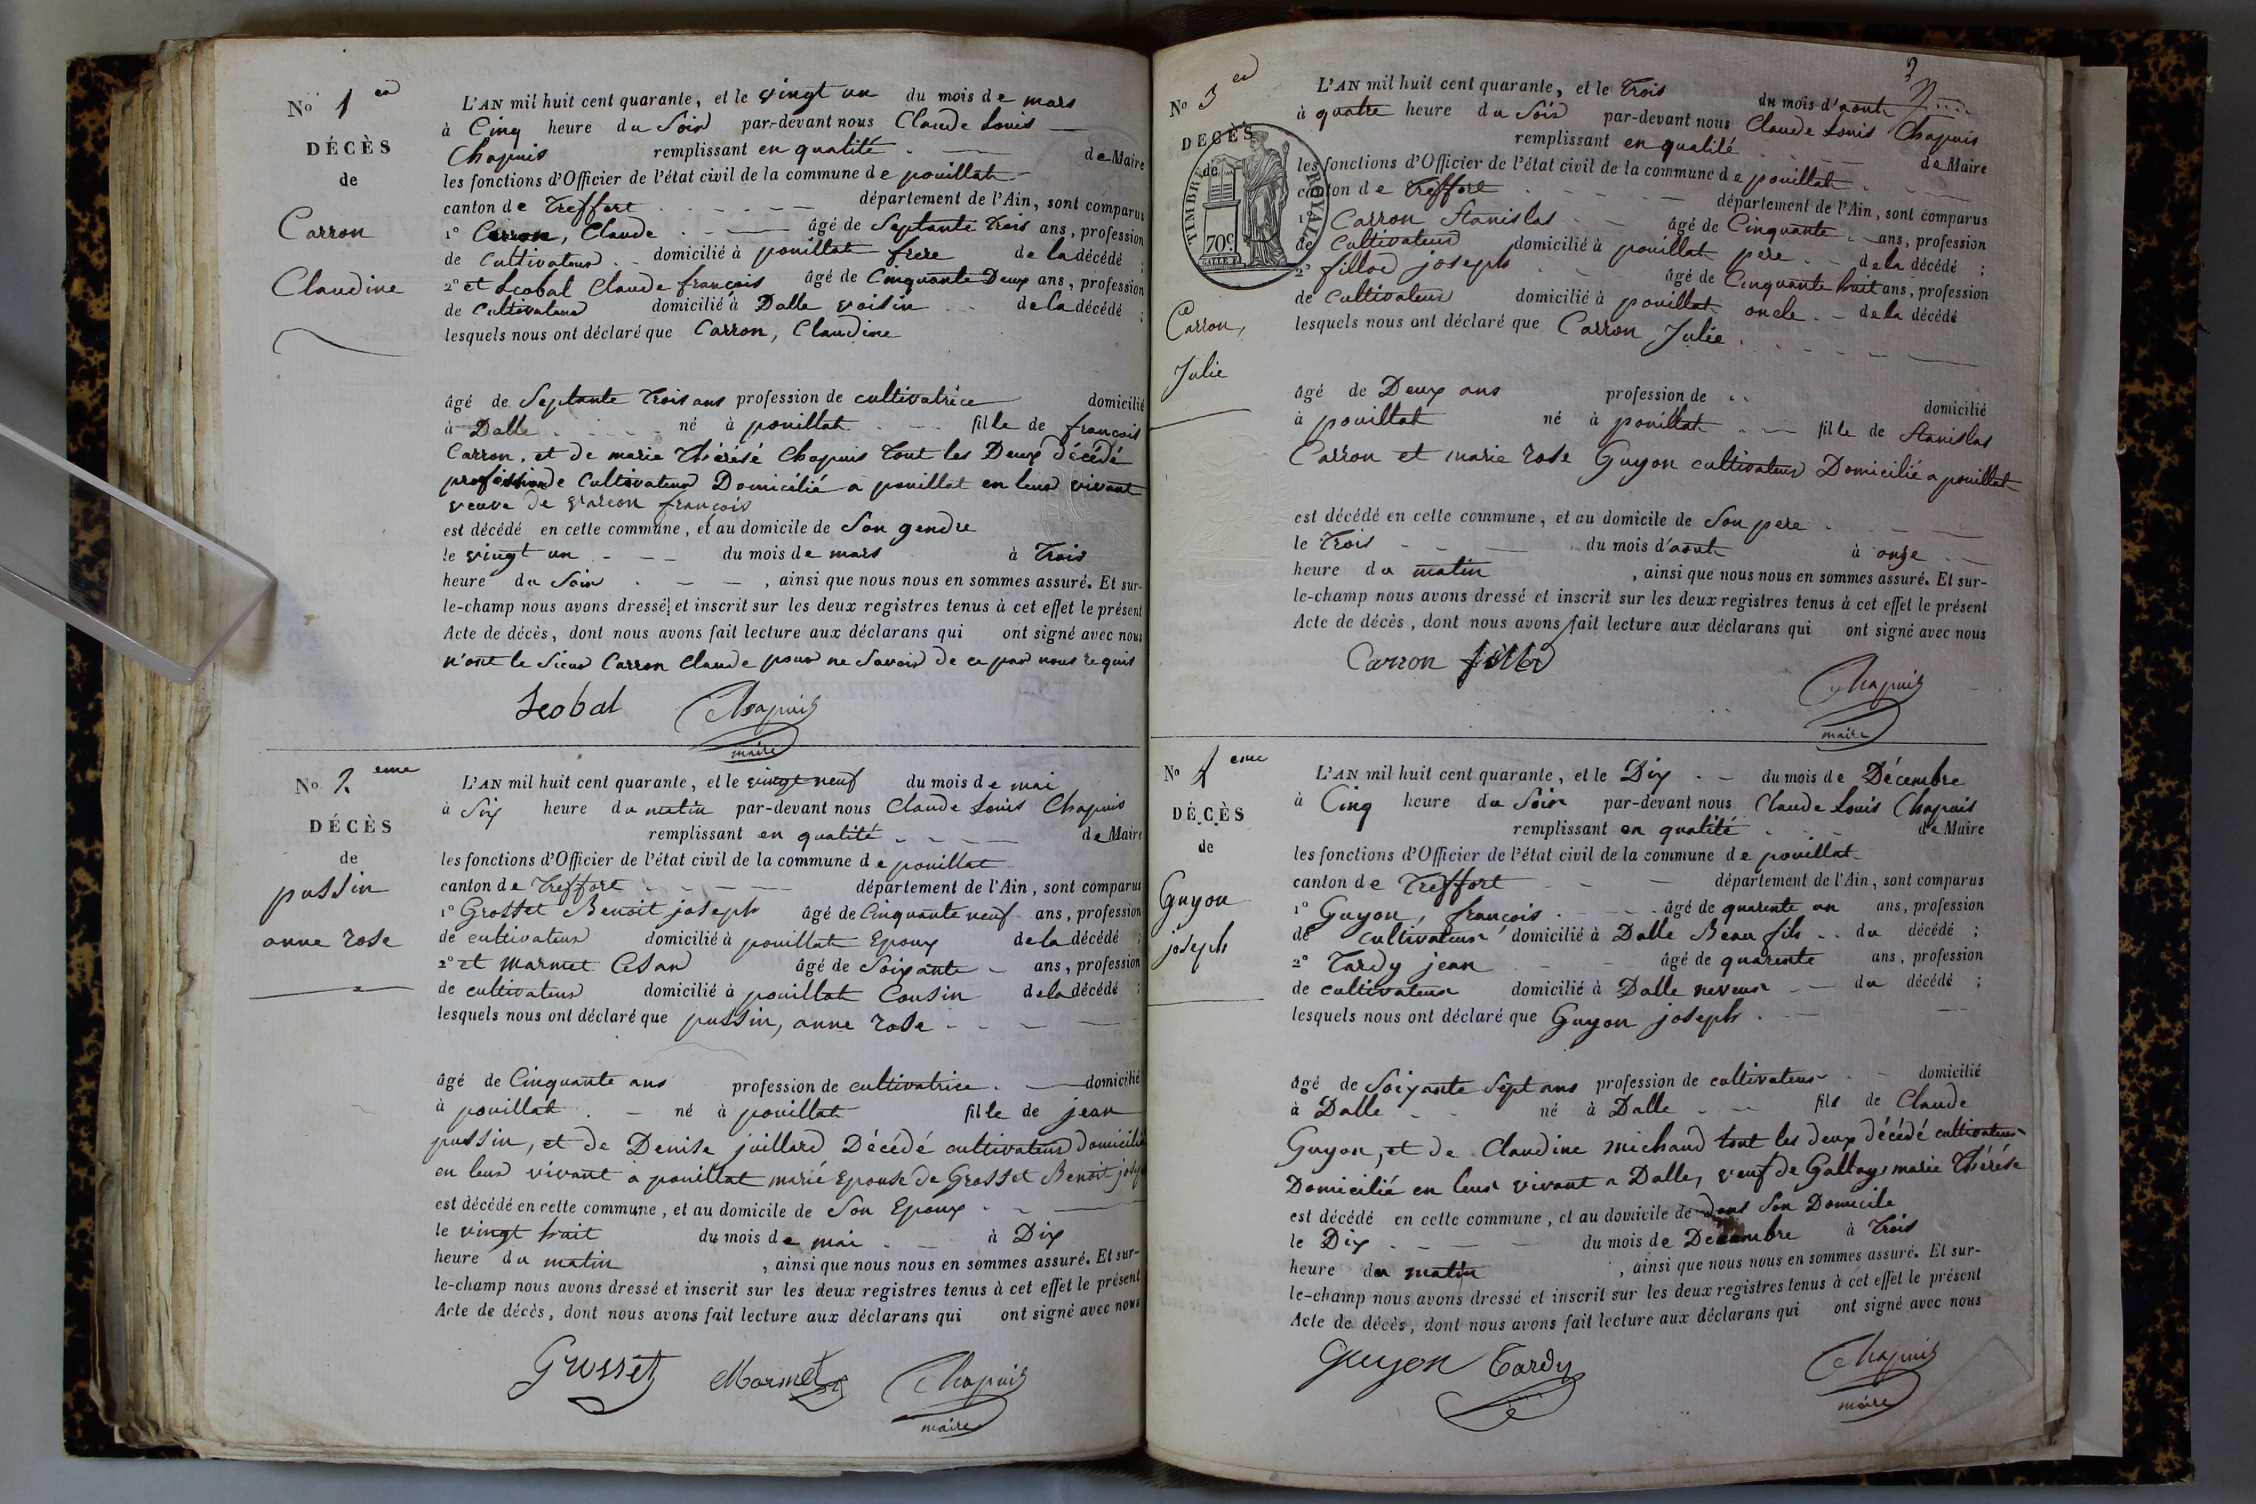 No 1er
DÉCÈS
de
Carron
Claudine
L'AN mil huit cent quarante, et le vingt un du mois de mars
à Cinq heure du Soir par-devant nous Claude Louis
Chapuis remplissant en qualité de Maire
les fonctions d'Officier de l'état civil de la commune de pouillat
canton de Treffort département de l'Ain, sont comparus
1° Carron, Claude âgé de Septante Trois ans, profession
de Cultivateur domicilié à pouillat frere de la décédé ;
2° et Scobal Claude françois âgé de Cinquante Deux ans, profession
de Cultivateur domicilié à Dalle voisin de la décédé ;
lesquels nous ont déclaré que Carron, Claudine
âgé de Septante Trois ans profession de cultivatrice domicilié
à Dalle né à pouillat fille de françois
Carron, et de marie Thérésé Chapuis Tout les Deux décédé
profession de Cultivateur Domicilié a pouillat en leur vivant
veuve de françois
est décédé en cette commune, et au domicile de Son gendre
le vingt un du mois de mars à Trois
heure du Soir , ainsi que nous nous en sommes assuré. Et sur-
le-champ nous avons dressé et inscrit sur les deux registres tenus à cet effet le présent
Acte de décès, dont nous avons fait lecture aux déclarans qui ont signé avec nous
n'ont le Sieur Carron Claude pour ne Savoir de ce par nous requis
Scobal Chapuis
maire
No 2eme
DÉCÈS
de
pussin
anne rose
L'AN mil huit cent quarante, et le vingt neuf du mois de mai
à Six heure du matin par-devant nous Claude Louis Chapuis
remplissant en qualité de Maire
les fonctions d'Officier de l'état civil de la commune de pouillat
canton de Treffort département de l'Ain, sont comparus
1° Grosset Benoit joseph âgé de Cinquante neuf ans, profession
de cultivateur domicilié à pouillat Epoux de la décédé ;
2° et Marmet César âgé de Soixante ans, profession
de cultivateur domicilié à pouillat Cousin de la décédé ;
lesquels nous ont déclaré que pussin, anne rose
âgé de Cinquante ans profession de cultivatrice domicilié
à pouillat né à pouillat fille de jean
pussin, et de Denise juillard Décédé cultivateur domicilié
en leur vivant à pouillat marié Epouse de Grosset Benoit
est décédé en cette commune, et au domicile de Son Epoux
le vingt huit du mois de mai à Dix
heure du matin , ainsi que nous nous en sommes assuré. Et sur-
le-champ nous avons dressé et inscrit sur les deux registres tenus à cet effet le présent
Acte de décès, dont nous avons fait lecture aux déclarans qui ont signé avec nous
Grosset Marmet Chapuis
maire
2
No 3er
DÉCÈS
de
TIMBRE ROYAL
70c
Carron,
Julie
L'AN mil huit cent quarante, et le Trois du mois d'aout
à quatre heure du Soir par-devant nous Claude Louis Chapuis
remplissant en qualité de Maire
les fonctions d'Officier de l'état civil de la commune de pouillat
canton de Treffort département de l'Ain, sont comparus
1° Carron Stanislas âgé de Cinquante ans, profession
de Cultivateur domicilié à pouillat pere de la décédé ;
2° fillod joseph âgé de Cinquante huit ans, profession
de Cultivateur domicilié à pouillat oncle de la décédé
lesquels nous ont déclaré que Carron Julie
âgé de Deux ans profession de domicilié
à pouillat né à pouillat fille de Stanislas
Carron et marie rose Guyon cultivateur Domicilié a pouillat
est décédé en cette commune, et au domicile de Son pere
le Trois du mois d'aout à onze
heure du matin , ainsi que nous nous en sommes assuré. Et sur-
le-champ nous avons dressé et inscrit sur les deux registres tenus à cet effet le présent
Acte de décès, dont nous avons fait lecture aux déclarans qui ont signé avec nous
Carron fillod Chapuis
maire
No 4eme
DÉCÈS
de
Guyon
joseph
L'AN mil huit cent quarante, et le Dix du mois de Décembre
à Cinq heure du Soir par-devant nous Claude Louis Chapuis
remplissant en qualité de Maire
les fonctions d'Officier de l'état civil de la commune de pouillat
canton de Treffort département de l'Ain, sont comparus
1° Guyon, françois âgé de quarente un ans, profession
de cultivateur domicilié à Dalle Beau fils du décédé ;
2° Tardy jean âgé de quarente ans, profession
de cultivateur domicilié à Dalle neveur du décédé ;
lesquels nous ont déclaré que Guyon joseph
âgé de Soixante Sept ans profession de cultivateur domicilié
à Dalle né à Dalle fils de Claude
Guyon, et de Claudine michaud tout les deux décédé cultivateur
Domicilié en leur vivant a Dalle, veuf de Gallay marie Thérése
est décédé en cette commune, et au domicile de dans Son Domicile
le Dix du mois de Decembre à Trois
heure du matin , ainsi que nous nous en sommes assuré. Et sur-
le-champ nous avons dressé et inscrit sur les deux registres tenus à cet effet le présent
Acte de décès, dont nous avons fait lecture aux déclarans qui ont signé avec nous
Guyon Tardy Chapuis
maire